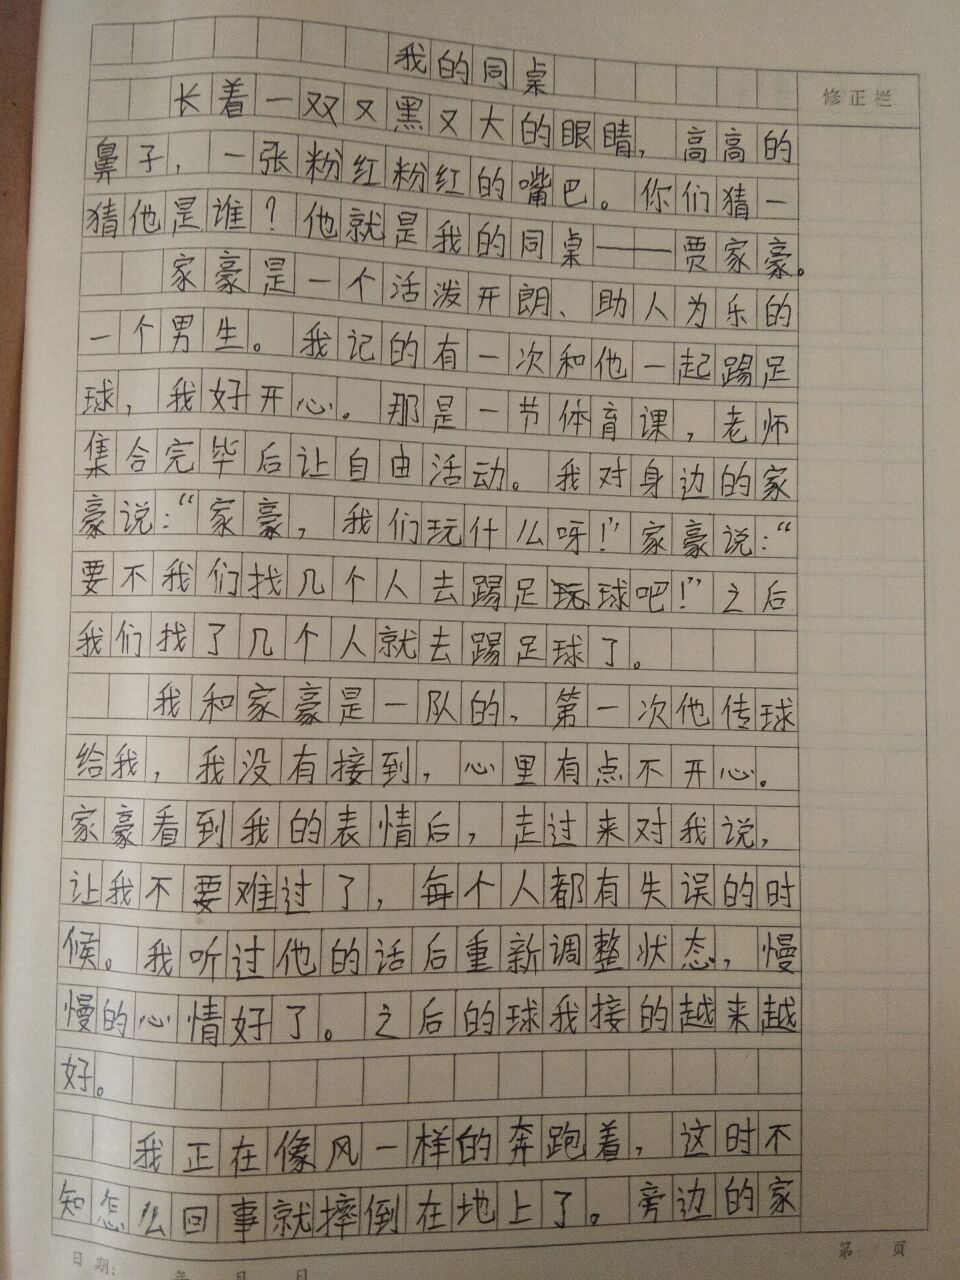 我的同桌
修正栏
长着一双又黑又大的眼睛，高高的
鼻子，一张粉红粉红的嘴巴。你们猜一
猜他是谁？他就是我的同桌——贾家豪。
家豪是一个活泼开朗、助人为乐的
一个男生。我记的有一次和他一起踢足
球，我好开心。那是一节体育课，老师
集合完毕后让自由活动。我对身边的家
豪说：“家豪，我们玩什么呀！”家豪说：“
要不我们找几个人去踢足球吧！”之后
我们找了几个人就去踢足球了。
我和家豪是一队的，第一次他传球
给我，我没有接到，心里有点不开心。
家豪看到我的表情后，走过来对我说，
让我不要难过了，每个人都有失误的时
候。我听过他的话后重新调整状态，慢
慢的心情好了。之后的球我接的越来越
好。
我正在像风一样的奔跑着，这时不
知怎么回事就摔倒在地上了。旁边的家
日期： 年 月 日
第 页